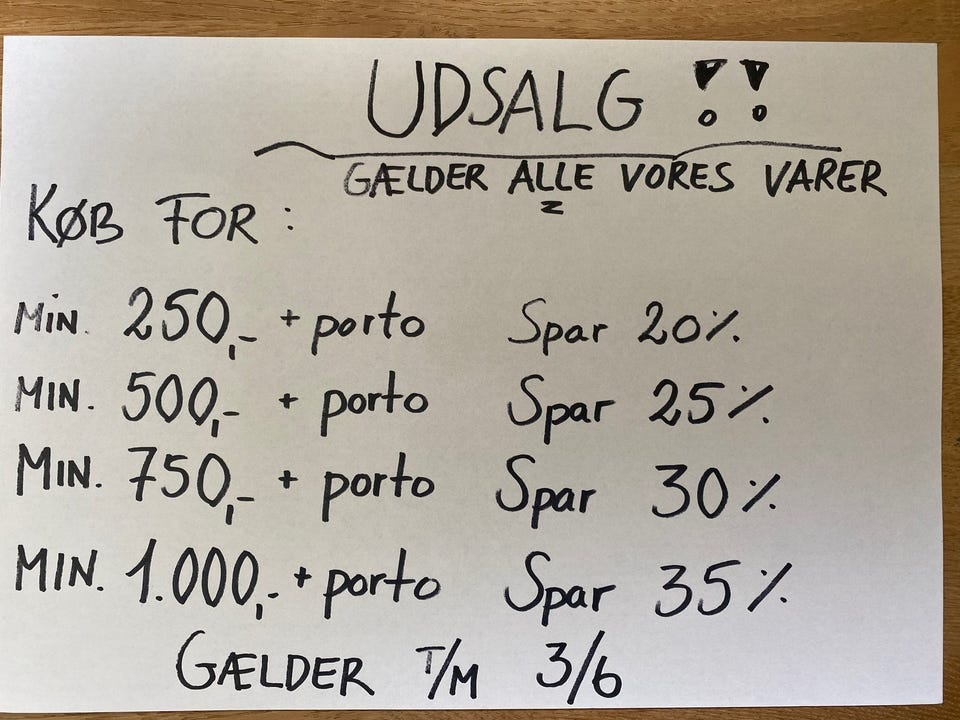 UDSALG !!
GÆLDER ALLE VORES VARER
KØB FOR :
Min. 250,- + porto Spar 20%
MIN. 500,- + porto Spar 25%
MIN. 750,- + porto Spar 30%
MIN. 1.000,- + porto Spar 35%
GÆLDER T/M 3/6